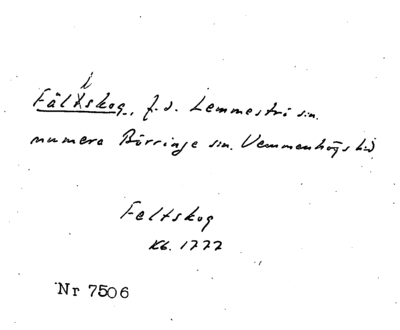 Fältskog, f.d. Lemmeströ sn.
numera Börringe sn. Vemmenhögs hd
Feltskog
Kb. 1777
Nr 7506